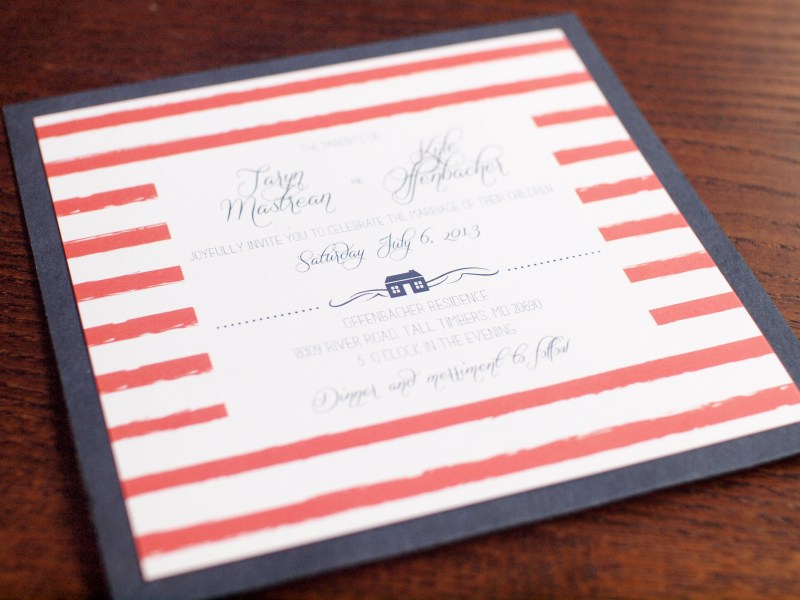 THE PARENTS OF
Taryn Mastrean AND Kyle Offenbacher
JOYFULLY INVITE YOU TO CELEBRATE THE MARRIAGE OF THEIR CHILDREN
Saturday July 6, 2013
OFFENBACHER RESIDENCE
18309 RIVER ROAD, TALL TIMBERS, MD 20690
5 O'CLOCK IN THE EVENING
Dinner and merriment to follow